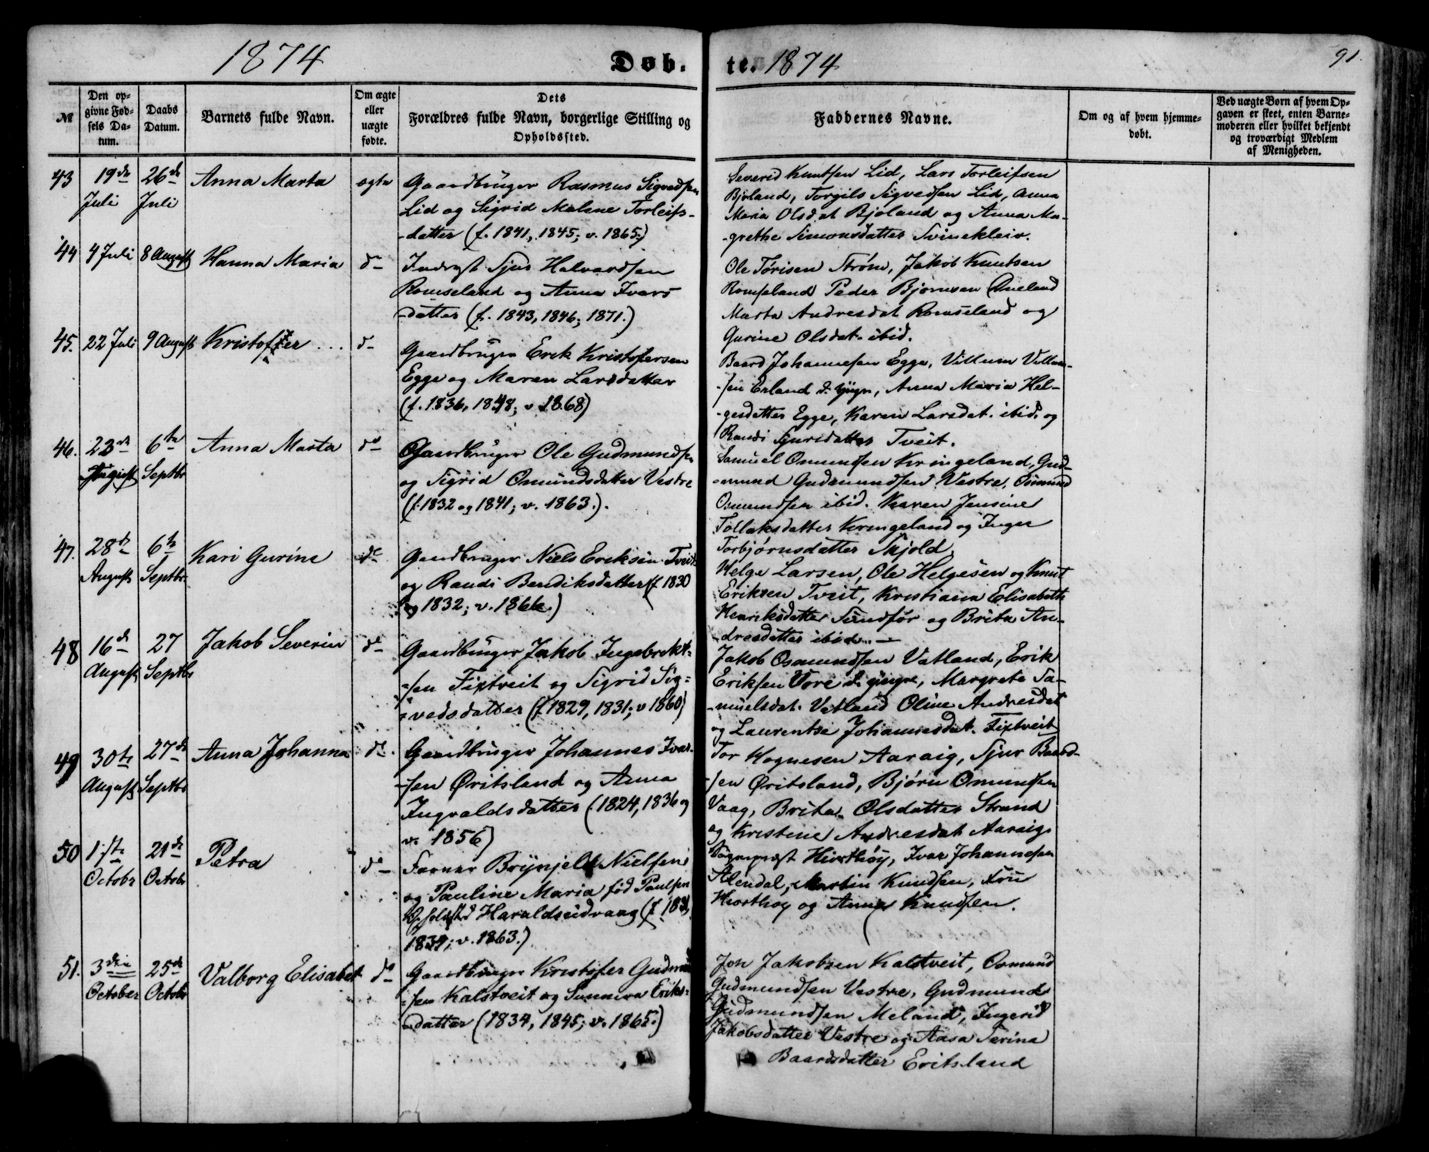 1874
Døb.
te. 1874
91.
№
Den op-
givne Fød-
sels Da-
tum.
Daabs
Datum.
Barnets fulde Navn.
Om ægte
eller
uægte
fødte.
Dets
Forældres fulde Navn, borgerlige Stilling og
Opholdssted.
Faddernes Navne.
Om og af hvem hjemme-
døbt.
Ved uægte Børn af hvem Op-
gaven er skeet, enten Barne-
moderen eller hvilket bekjendt
og troværdigt Medlem
af Menigheden.
43 19de Juli 26de Juli Anna Marta ægte
Gaardbruger Rasmus Sigvedsen
Lid og Sigrid Malene Torleifs-
-datter (f. 1841, 1845; v. 1865)
Severid Knutsen Lid, Lars Torleifsen
Bjoland, Torgils Sigvedsen Lid, Anna
Maria Olsdat Bjoland og Anna Ma-
-grethe Simonsdatter Svinekleiv.
44 4 Juli 8 August Hanna Maria do
Inderst Sjur Halvardsen
Romseland og Anna Ivars
-datter (f. 1843, 1846, 1871.)
Ole Torisen Strøm, Jakob Knutsen
Romseland Peder Bjørnsen
Marta Andresdat Romseland og
Gurine Olsdat. ibid.
45. 22 Juli 9 August Kristoffer do
Gaardbruger Erik Kristofersen
Egge og Maren Larsdatter
(f. 1836, 1848; v. 1868)
Baard Johannesen Egge, Villum Villum-
-sen Erland d. yngr, Anna Maria Hel-
-gesdatter Egge, Karen Larsdat. ibid. og
Randi Sjursdatter Tveit.
46. 23de August 6te Septbr Anna Marta do
Gaardbruger Ole Gudmundsen
og Sigrid Osmundsdatter Vestre
(f. 1832 og 1841; v. 1863.).
Samuel Osmundsen Kringeland, Gud-
-mund Gudmundsen Vestre, Osmund
Osmundsen ibid. Karen Jensine
Tollaksdatter Kringeland og Inger
Torbjørnsdatter Skjold
47. 28de August 6te Septbr Kari Gurine do
Gaardbruger Niels Eriksen Tveit
og Randi Bendiksdatter (f. 1830
og 1832; v. 1866.)
Helge Larsen, Ole Helgesen og Knut
Eriksen Tveit, Kristiana Elisabeth
Henriksdatter Sandfør og Brita An-
-dresdatter ibid.
48 16de August 27 Septbr Jakob Severin do
Gaardbruger Jakob Ingebrekt-
-sen Fixtveit og Sigrid Sig-
-vedsdatter (f. 1829, 1831; v 1860)
Jakob Osmundsen Vatland, Erik
Eriksen Vore d. yngre, Margrete Sa-
-muelsdat. Vatland Oline Andresdat
og Laurentse Johannesdat. Fixtveit
49 30te August 27de Septbr Anna Johanna do
Gaardbruger Johannes Ivar-
-sen Øritsland og Anna
Ingvaldsdatter (1824, 1836 og
v. 1856)
Tor Kognesen Aaraig, Sjur Baard-
-sen Øritsland, Bjørn Osmundsen
Vaag, Brita Olsdatter Strand
og Kristine Andresdat Aaraig
50 1ste Octobr 21de Octobr Petra do
Farver Brynjeld Nielsen
og Pauline Maria fød Paulsen
Opholdssted Haraldseidvaag (f. 183
1839; v. 1863.)
Sognepræst Hiorthøy, Ivar Johannesen
Alendal, Martin Knudsen, Fru
Hiorthøy og Anna Knudsen.
51. 3die October 25de Octobr Valborg Elisabet do
Gaardbruger Kristofer Gudmund
-sen Kalstveit og Sunniva Eriks-
-datter (1834, 1845; v. 1865.)
Jon Jakobsen Kalstveit, Osmund
Gudmundsen Vestre, Gudmund
Gudmundsen Meland, Ingerid
Jakobsdatter Vestre og Aasa Serina
Baardsdatter Eritsland